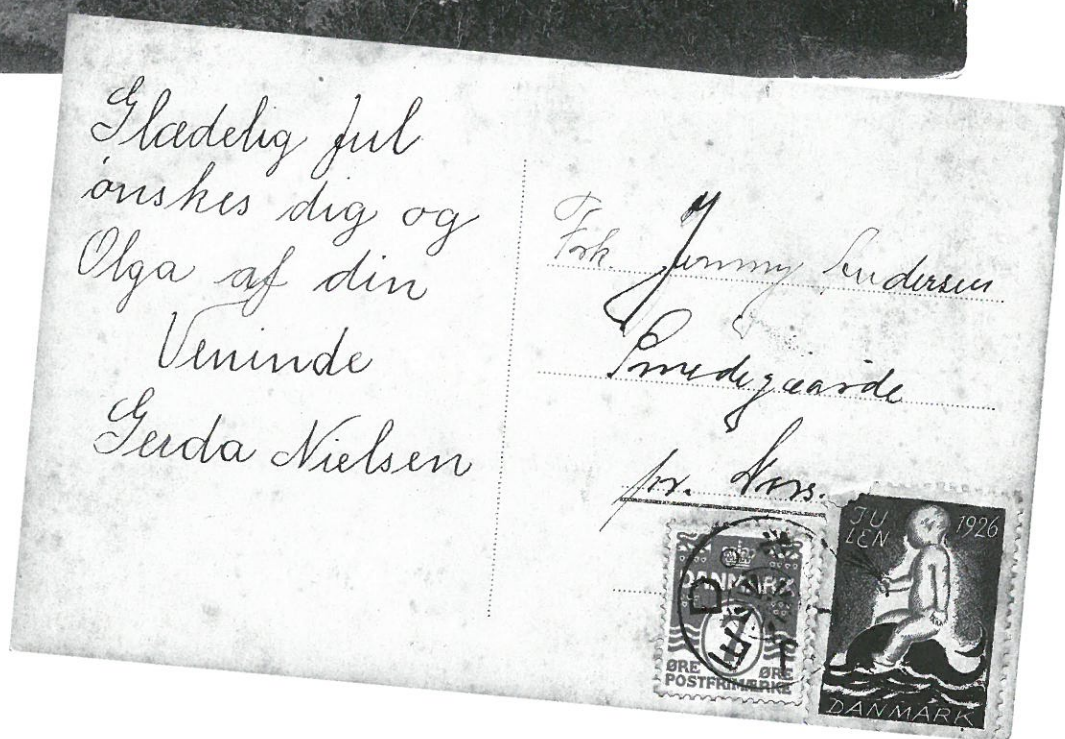 Glædelig Jul
ønskes dig og
Olga af din
Veninde
Gerda Nielsen
Frk. Jenny Andersen
Smedegaarde
pr. Nors.
DANMARK
ØRE ØRE
POSTFRIMÆRKE
JU
LEN 1926
DANMARK